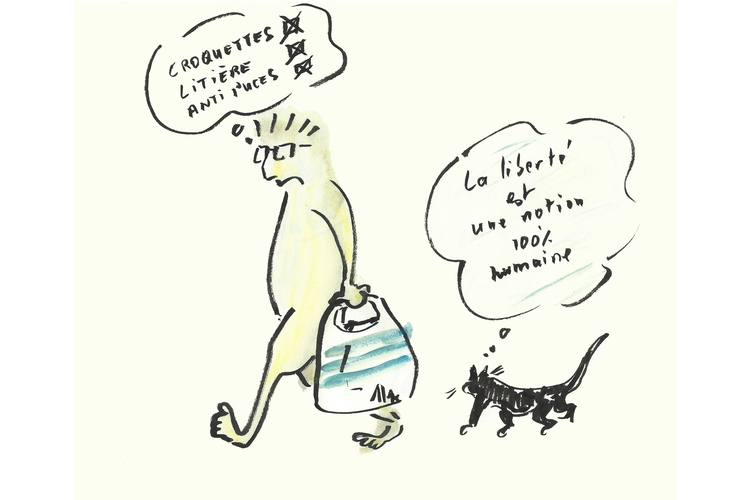 CROQUETTES
LITIÈRE
ANTI PUCES
La liberté
est
une notion
100%
humaine